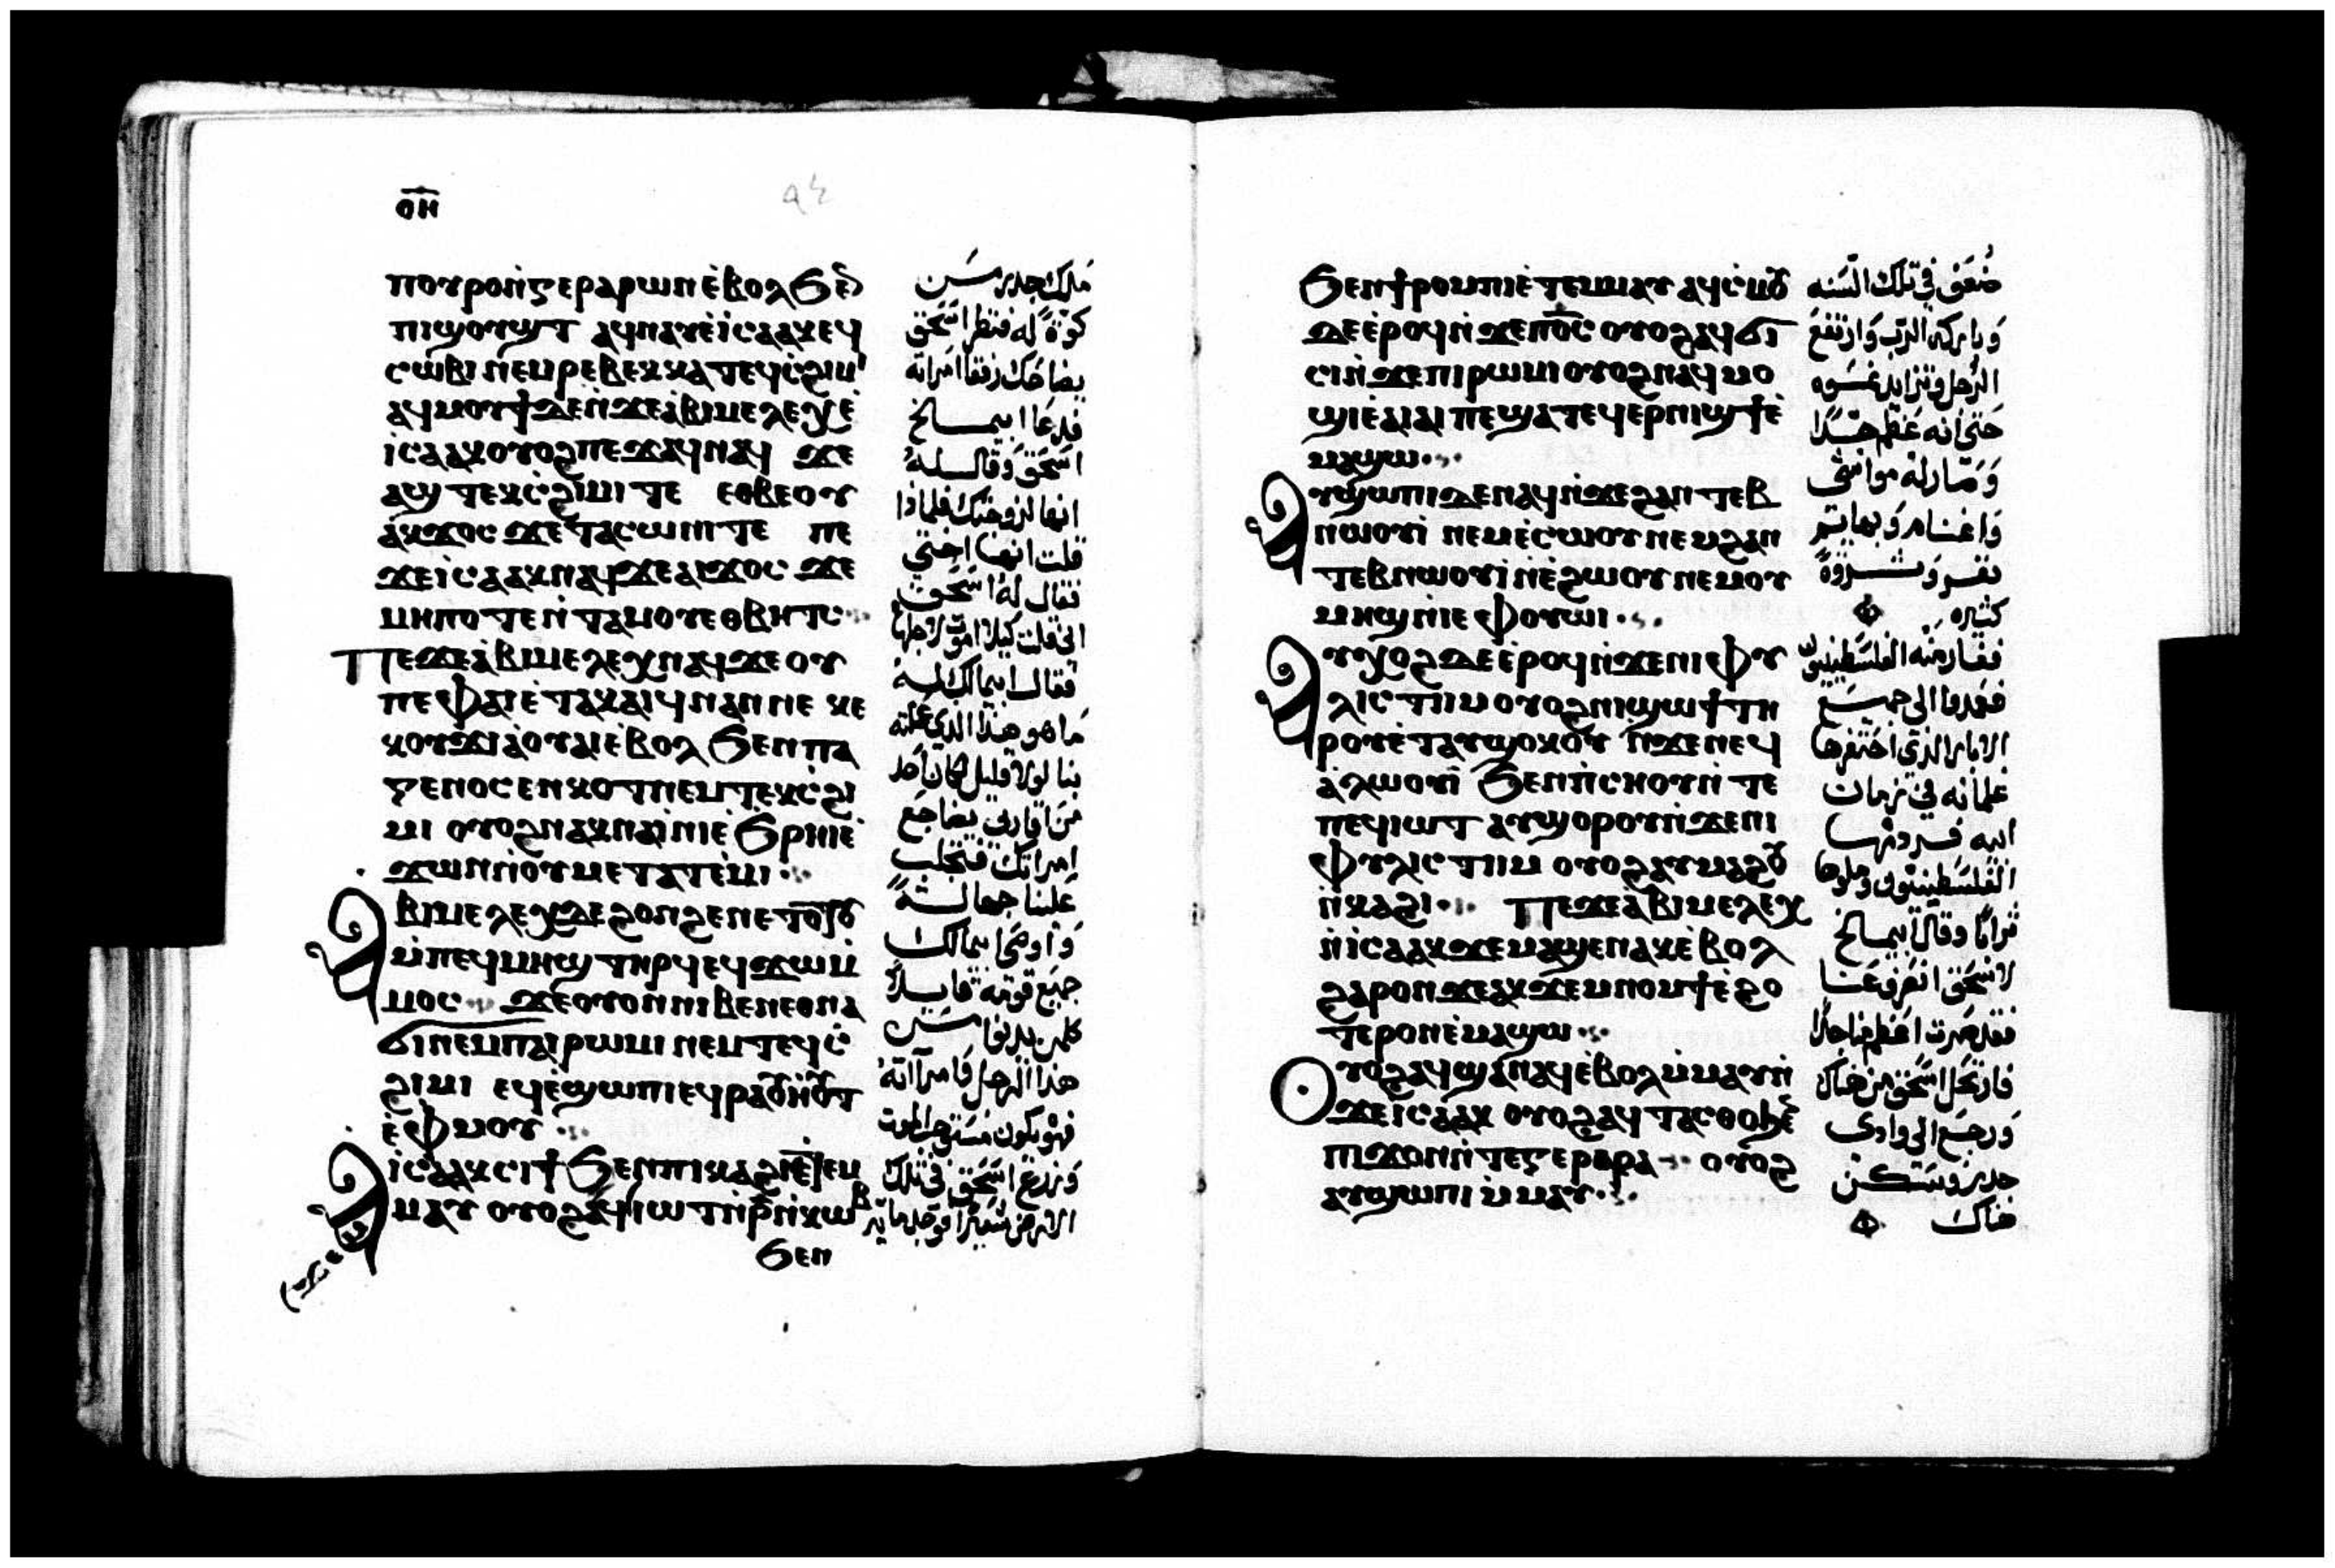 ⲟⲏ
ⲡⲟⲩⲣⲟⲛ̇ⲅⲉⲣⲁⲣⲱⲛⲉ̇ⲃⲟⲗϧⲉ
ⲡⲓϣⲟⲩϣⲧ ⲁϥⲛⲁⲩⲉ̇ⲓⲥⲁⲁⲕⲉϥ
ⲥⲱⲃⲓ ⲛⲉⲙⲣⲉⲃⲉⲕⲕⲁ ⲧⲉϥⲥ̇ϩⲓⲙ
ⲁϥⲙⲟⲩϯⲇⲉⲛ̇ϫⲉⲁ̇ⲃⲓⲙⲉⲗⲉⲭⲉ̇
ⲓⲥⲁⲁⲕⲟⲩⲟϩⲡⲉϫⲁϥⲛⲁϥ ϫⲉ
ⲁϣ ⲧⲉⲕⲥ̇ϩⲓⲙⲓ ⲧⲉ ⲉⲑⲃⲉⲟⲩ
ⲁⲕϫⲟⲥ ϫⲉⲧⲁⲥⲱⲛⲓ ⲧⲉ ⲡⲉ
ϫⲉⲓⲥⲁⲁⲕⲛⲁϥϫⲉⲁⲓϫⲟⲥ ϫⲉ
ⲙⲏⲡⲟⲧⲉⲛ̇ⲧⲁⲙⲟⲩⲉⲑⲃⲏⲧⲥ
ⲡⲉϫⲉⲁ̇ⲃⲓⲙⲉⲗⲉⲭⲛⲁϥϫⲉ ⲟⲩ
ⲡⲉ ⲫⲁⲓⲉ̇ⲧⲁⲕⲁⲓϥⲛⲁⲛ ⲛⲉ ⲕⲉ
ⲕⲟⲩϫⲓⲁ̇ⲟⲩⲁⲓⲉ̇ⲃⲟⲗ ϧⲉⲛⲡⲁ
ⲅⲉⲛⲟⲥ ⲉⲛⲕⲟⲧⲛⲉⲙⲧⲉⲕⲥ̇ϩⲓ
ⲙⲓ ⲟⲩⲟϩⲛⲁⲕⲛⲁⲓ̇ⲛⲓⲉ̇ϩⲣⲏⲓⲉ̇
ϫⲱⲛⲛ̇ⲟⲩⲙⲉⲧⲁⲧⲉ̇ⲙⲓ
ⲁⲃⲓⲙⲉⲗⲉⲭⲇⲉϩⲟⲛϩⲉⲛⲉⲧⲟⲧⲟⲩ
ⲙ̇ⲡⲉϥⲙⲏϣ ⲧⲏⲣϥ ⲉϥϫⲱⲙ̇
ⲙⲟⲥ ϫⲉⲟⲩⲟⲛ ⲛⲓⲃⲉⲛⲉⲑⲛⲁ
ϭⲓⲛⲉⲙⲡⲁⲓⲣⲱⲙⲓ ⲛⲉⲙⲧⲉϥⲥ̇
ϩⲓⲙⲓ ⲉϥⲉ̇ϣⲱⲡⲓ ⲉϥ
ⲉ̇ⲫⲙⲟⲩ
ⲁⲓ̇ⲥⲁⲁⲕⲥⲓϯ ϧⲉⲛⲡⲓⲕⲁϩⲓ
ⲙⲁⲩ ⲟⲩⲟϩ
ϧⲉⲛ
ملك جدر من
كوة له فنظر اسحق
يضاحك رفقا امراته
فدعا ابيمالخ
اسحق وقال له
انها لزوجتك فلماذا
قلت انها اختي
فقال له اسحق
اني قلت كيلا اموت لاجلها
فقال ابيمالك له
ما هو هذا الذي عملته
بنا لولا قليل كان احد
من اقاربي يضاجع
امراتك فتجلب
علينا جهالة
واوصى ابيمالك
جميع قومه قايلا
كلمن يدنوا من
هذا الرجل وامراته
فهو يكون مستوجب الموت
وزرع اسحق في تلك
ϧⲉⲛϯⲣⲟⲙⲡⲓⲉ̇ⲧⲉⲙⲙⲁⲩ ⲁϥⲥ̇ⲙⲟⲩ
ⲇⲉⲉ̇ⲣⲟϥⲛ̇ϫⲉⲡⲟ̅ⲥ̅ ⲟⲩⲟϩⲁϥϭⲓ
ⲥⲓⲛ̇ϫⲉⲡⲓⲣⲱⲙⲓⲟⲩⲟϩⲛⲁϥⲙⲟ
ϣⲓⲉ̇ⲁⲓⲁⲓ ⲡⲉϣⲁⲧⲉϥⲉⲣⲛⲓϣϯⲉ̇
ⲙⲁϣⲱ
ⲁⲩϣⲱⲡⲓⲇⲉⲛⲁϥⲛ̇ϫⲉϩⲁⲛⲧⲉⲃ
ⲛⲱⲟⲩⲓ̇ ⲛⲉⲙⲉ̇ⲥⲱⲟⲩ ⲛⲉⲙϩⲁⲛ
ⲧⲉⲃⲛⲱⲟⲩⲓ̇ⲛ̇ⲉ̇ϩⲱⲟⲩ ⲛⲉⲙⲟⲩ
ⲙⲏϣ ⲛ̇ⲓⲉⲫⲟⲩⲱⲓ
ⲁⲩⲭⲟϩⲇⲉⲉ̇ⲣⲟϥⲛ̇ϫⲉⲛⲓⲫⲩ
ⲗⲓⲥⲧⲓⲙ ⲟⲩⲟϩⲛⲓϣⲱϯ ⲧⲏ
ⲣⲟⲩⲉ̇ⲧⲁⲩϣⲟⲕⲟⲩ ⲛ̇ϫⲉⲛⲉϥ
ⲁ̇ⲗⲱⲟⲩⲓ̇ ϧⲉⲛⲡ̇ⲥⲏⲟⲩⲛ̇ⲧⲉ
ⲡⲉϥⲓⲱⲧ ⲁⲩϣⲟⲣⲟⲩⲛ̇ϫⲉⲛⲓ
ⲫⲩⲗⲓⲥⲧⲓⲙ ⲟⲩⲟϩⲁⲩⲙⲁϩⲟⲩ
ⲛ̇ⲕⲁϩⲓ ⲡⲉϫⲉⲁ̇ⲃⲓⲙⲉⲗⲉⲭ
ⲛ̇ⲓⲥⲁⲁⲕϫⲉⲙⲁϣⲉⲛⲁⲕⲉ̇ⲃⲟⲗ
ϩⲁⲣⲟⲛϫⲉⲁⲕϫⲉⲙⲛⲟⲙϯⲉ̇ϩⲟ
ⲧⲉⲣⲟⲛⲉ̇ⲙⲁϣⲱ
ⲟⲩⲟϩⲁϥϣⲁⲛⲁϥⲉ̇ⲃⲟⲗⲙ̇ⲙⲁⲩⲛ̇
ϫⲉⲓ̇ⲥⲁⲁⲕ ⲟⲩⲟϩⲁϥⲧⲁⲥⲑⲟϧⲉⲛ
ⲡⲓϫⲟⲛⲛ̇ⲧⲉⲅⲉⲣⲁⲣⲁ ⲟⲩⲟϩ
ⲁⲩϣⲱⲡⲓ ⲙ̇ⲙⲁⲩ
ضعف في تلك السنه
وباركه الرب وارتفع
الرجل وتزايد نموه
حتى انه عظم جدا
وصار له مواشي
واغنام وبهايم
بقر وثروة
كثيره
فغار منه الفلسطينيون
فعمدوا الى جميع
الابار الذي احتفرها
غلمانه في زمان
ابيه فسردمها
الفلسطينيون وملوها
ترابا وقال ابيمالخ
لاسحق انصرف عنا
فقد صرت اعظم منا جدا
فارتحل اسحق من هناك
ورجع الى وادي
جدر وسكن
هناك